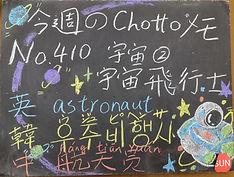 今週のChottoメモ
No.410 宇宙②
宇宙飛行士
英 astronaut
韓 우주비행사
háng tiān yuán
中 航天员
SUN